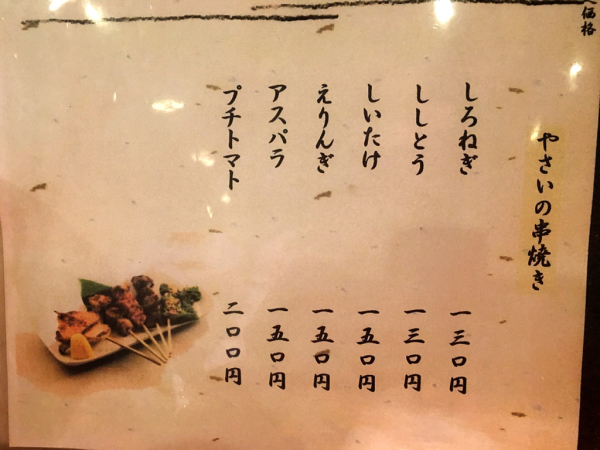 価格
やさいの串焼き
しろねぎ 一三〇円
ししとう 一三〇円
しいたけ 一五〇円
えりんぎ 一五〇円
アスパラ 一五〇円
プチトマト 二〇〇円